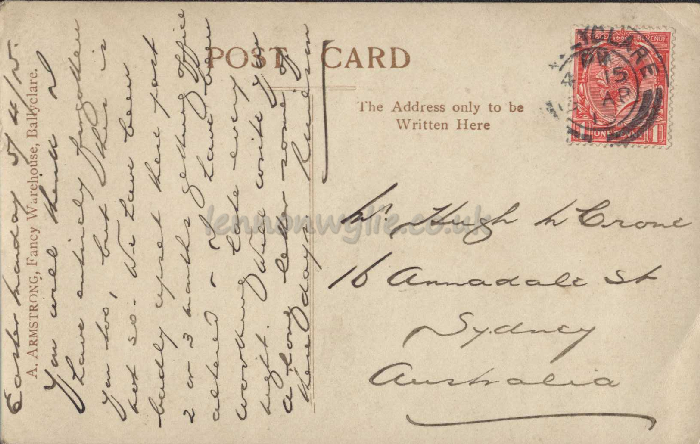 POST CARD
The Address only to be
Written Here
A. ARMSTRONG, Fancy Warehouse, Ballyclare.
Easter monday 5/4/15.
You will think I
have entirely forgotten
you too, but this is
not so. We have been
badly upset these past
2 or 3 months getting Office
altered & I have been
working late every
night. Will write you
a long letter some of
these days
Mr. Hugh McCrone
16 Annadale St
Sydney
Australia
BALLYCLARE
PM
15
AP
lennonwylie.co.uk